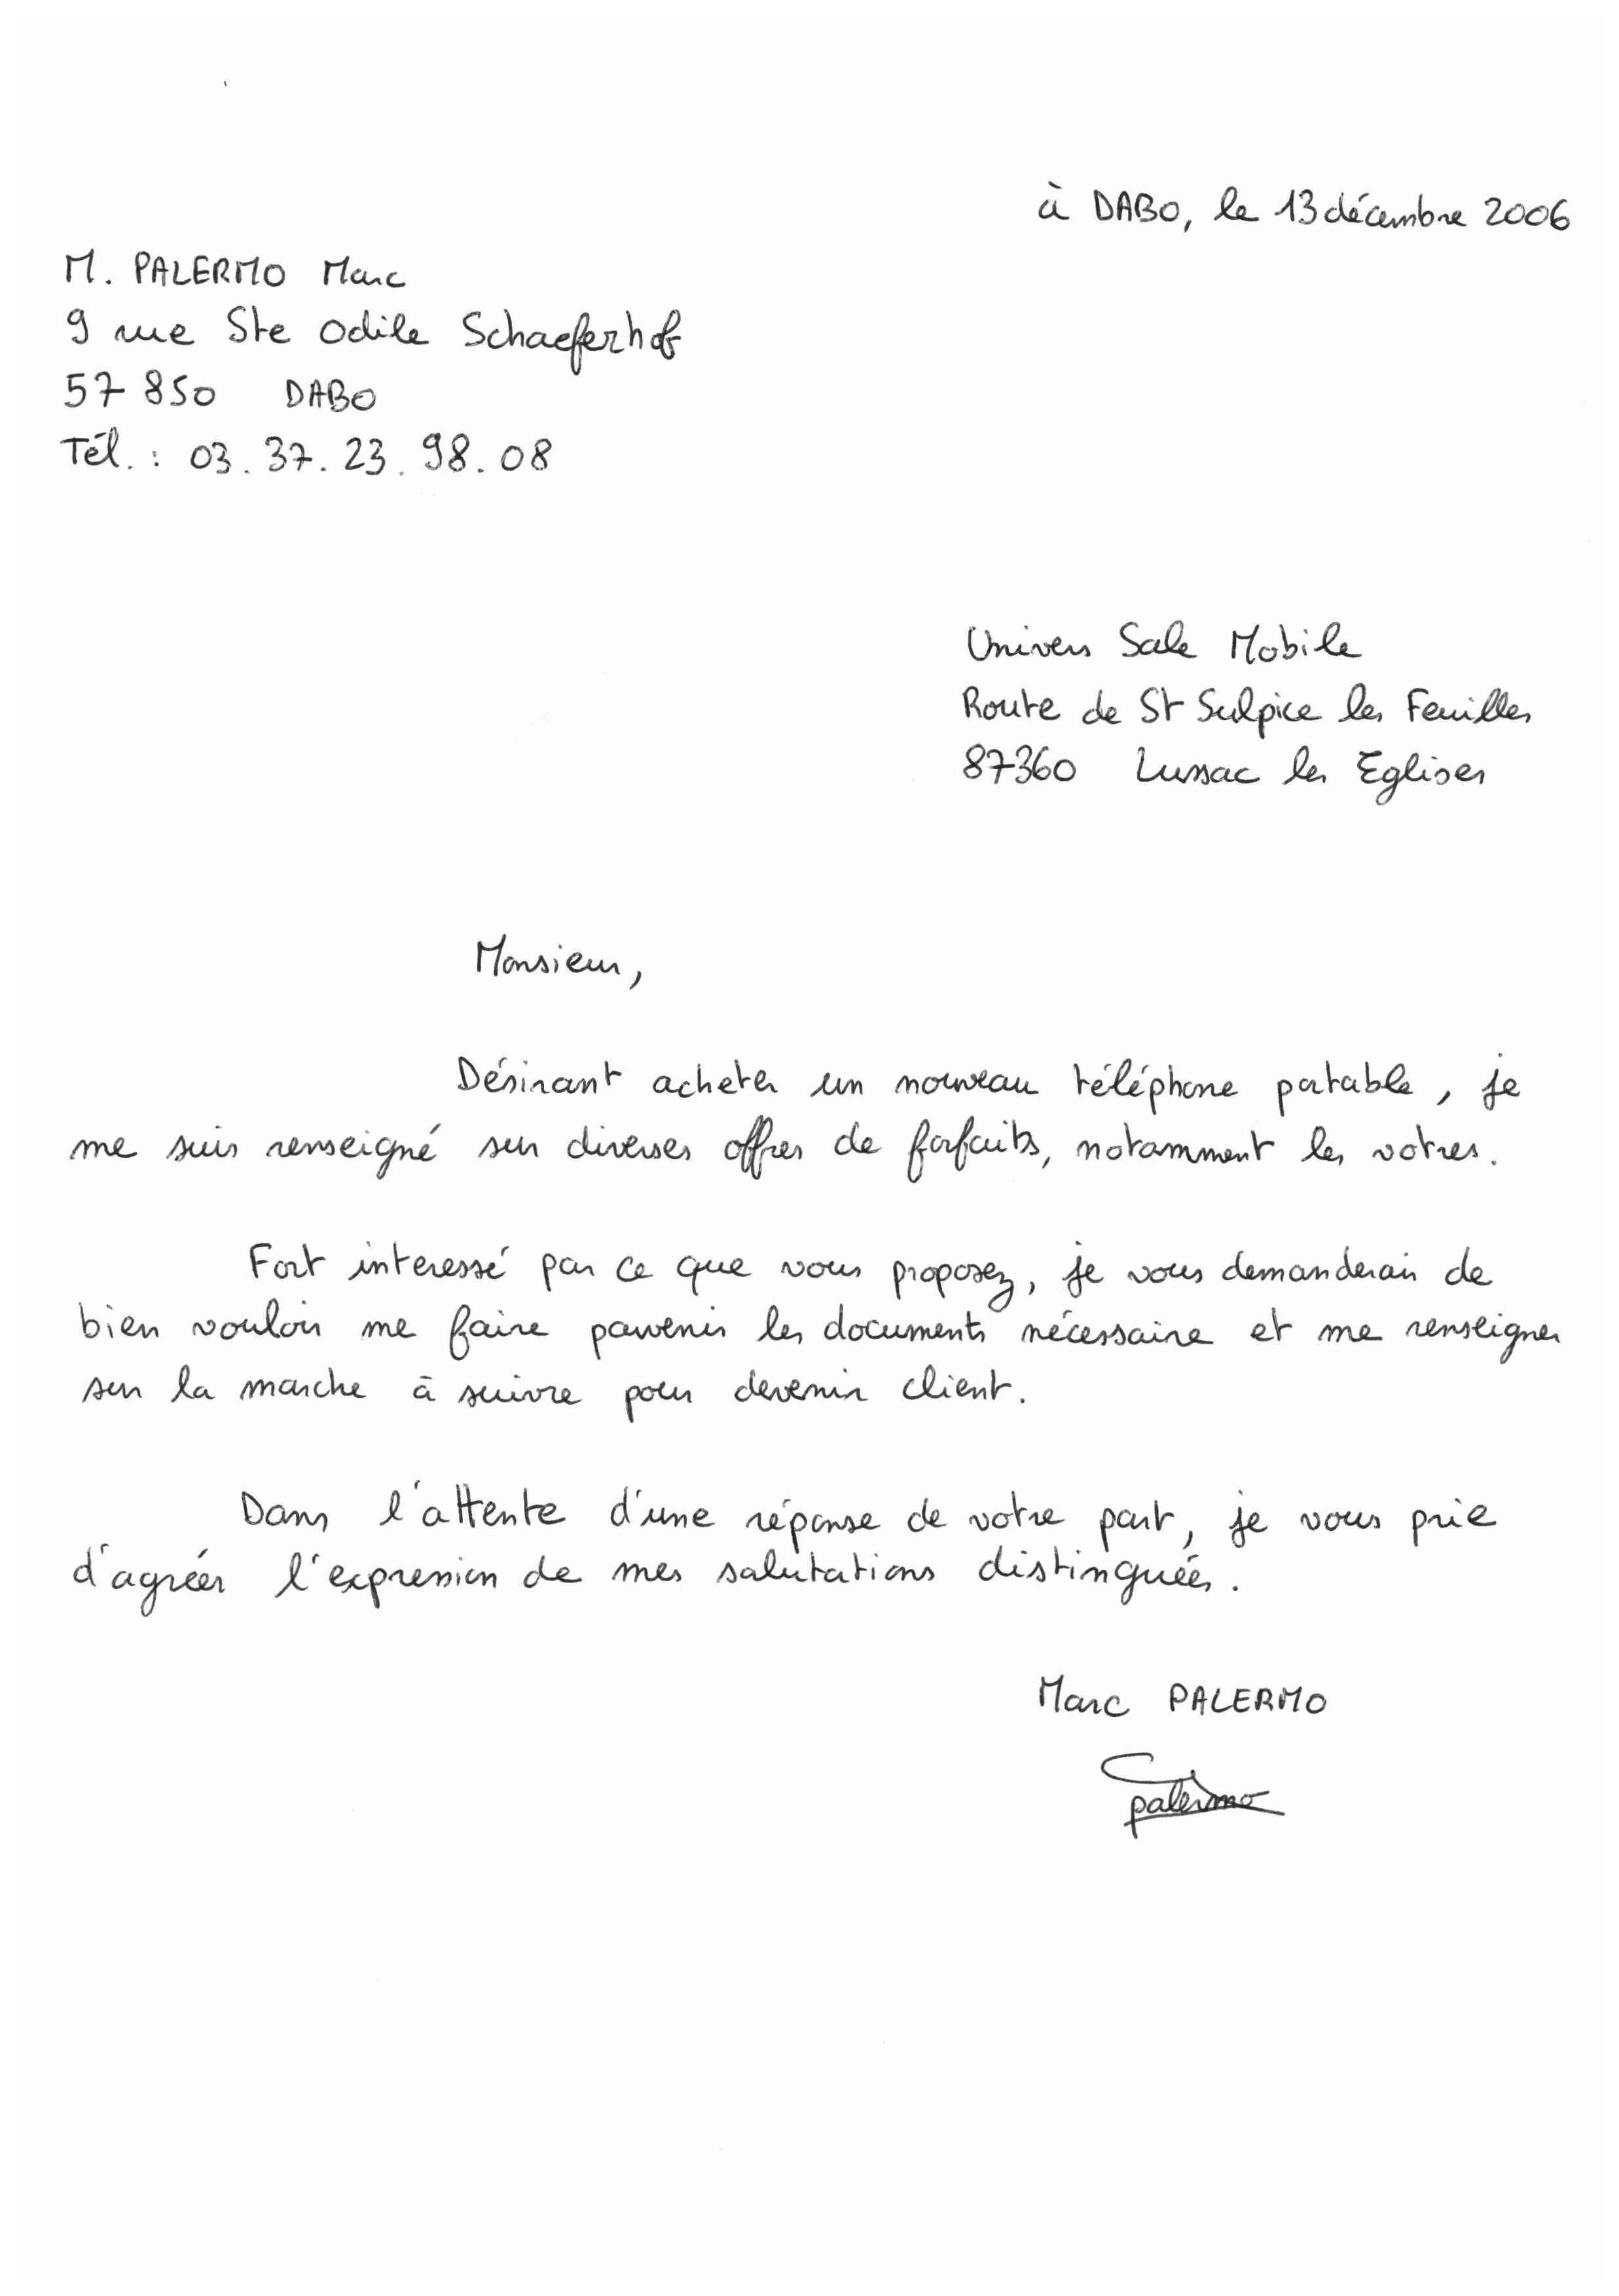 à DABO, le 13 décembre 2006
M. PALERMO Marc
9 rue Ste Odile Schaeferhof
57 850 DABO
Tél. : 03.37.23.98.08
Univers Sale Mobile
Route de St Sulpice les Feuilles
87360 Lussac les Eglises
Monsieur,
Désirant acheter un nouveau téléphone portable, je
me suis renseigné sur diverses offres de forfaits, notamment les votres.
Fort interessé par ce que vous proposez, je vous demanderais de
bien vouloir me faire parvenir les documents nécessaire et me renseigner
sur la marche à suivre pour devenir client.
Dans l'attente d'une réponse de votre part, je vous prie
d'agréer l'expression de mes salutations distinguées.
Marc PALERMO
palermo